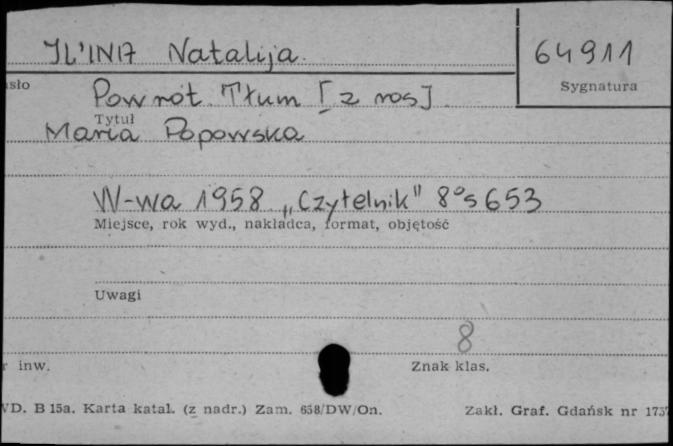 IL'INA Natalija.
64911
Sygnatura
Powrót. Tłum [z ros]
Tytuł
Maria Popowska
W-wa 1958 „Czytelnik" 8° s 653
Miejsce, rok wyd., nakładca, format, objętość
Uwagi
8
inw.
Znak klas.
B 15a. Karta katal. (z nadr.) Zam. 658/DW/On.
Zakł. Graf. Gdańsk nr